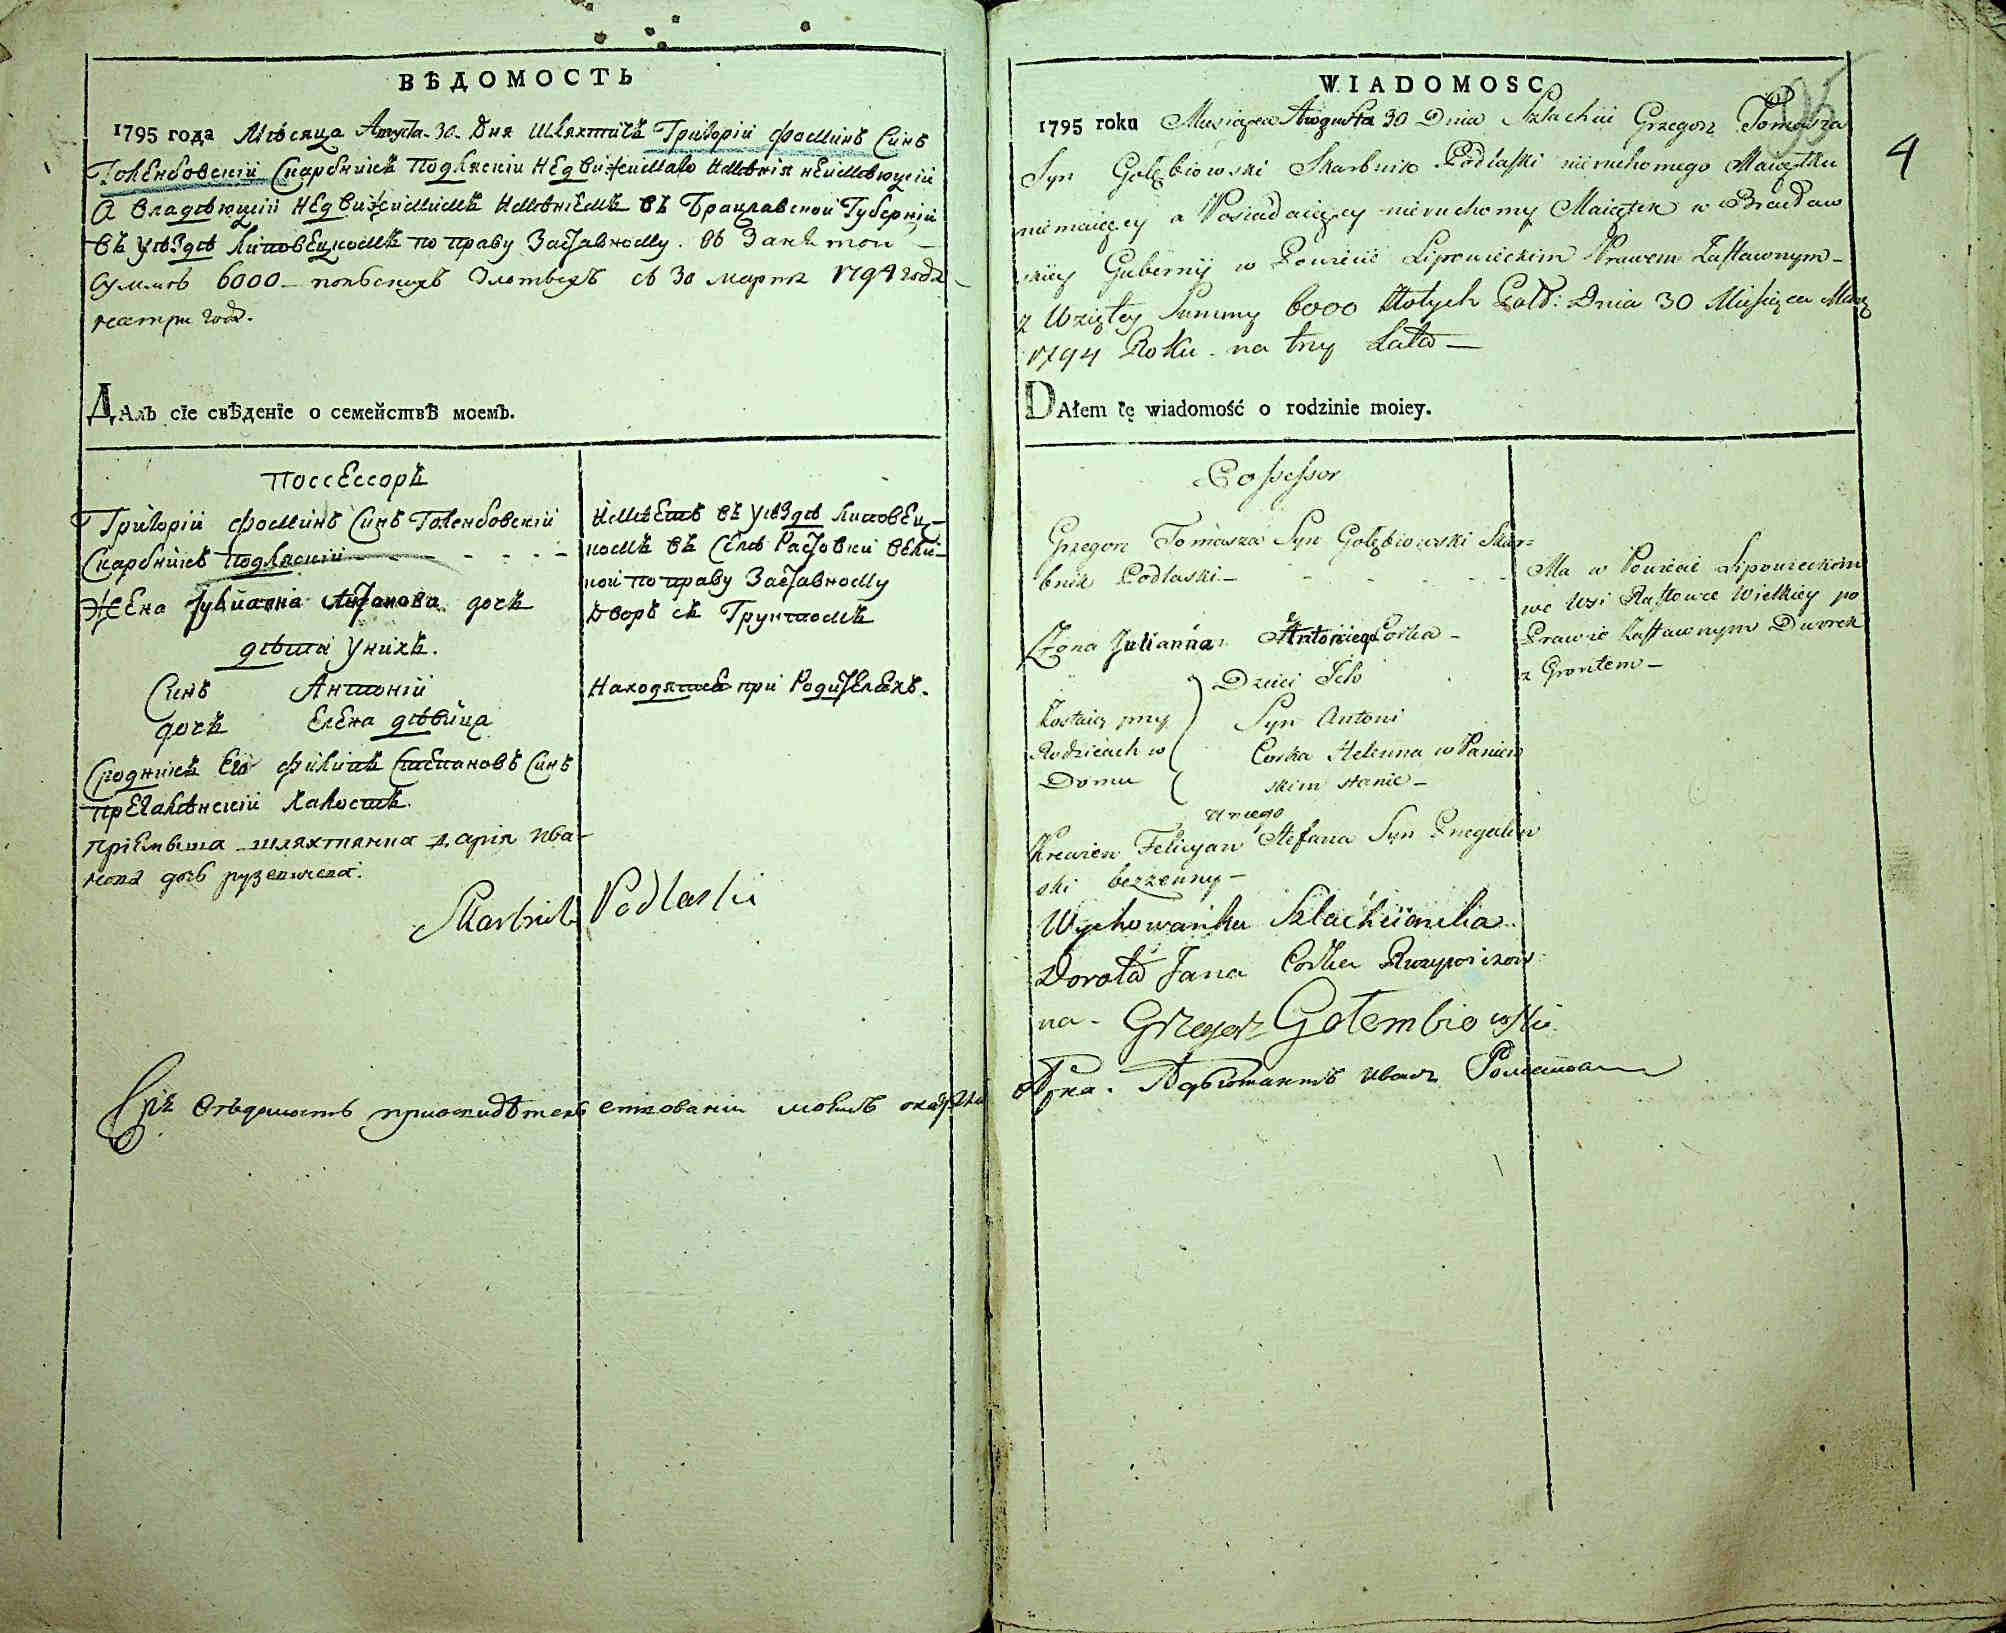 ВѢДОМОСТЬ
1795 года Мѣсяца Августа 30 Дня Шляхтичъ Григорій Фоминъ Синъ
Голенбовскій Скарбникъ Подляскій Недвижимаго Имѣнія неимѣющій
А владѣющій Недвижимимъ Имѣніемъ въ Брацлавской Губерніи
въ уѣздѣ Липовецкомъ по праву Заставному въ
Суммѣ 6000 польскихъ Злотыхъ съ 30 марта 1794 года
на три года.
ДАлъ сіе свѣденіе о семействѣ моемъ.
Поссессоръ
Григорій Фоминъ Синъ Голенбовскій
Скарбникъ Подляскій
Жена Іулианна Антонова дочь
дѣти у нихъ.
Синъ Антоній
дочь Елена дѣвица
Сродникъ Его Филипъ Степановъ Синъ
Холостъ.
шляхтянка Дарія Ива-
нова дочь
Имѣетъ въ уѣздѣ Липовец-
комъ въ Селѣ Растовки вели-
кой по праву Заставному
Дворъ съ Грунтомъ
Находятся при Родителехъ.
Skarbnik Podlaski
WIADOMOSC
4
1795 roku Miesiąca Augusta 30 Dnia Szlachcic Grzegorz Tomasza
Syn Gołębiowski Skarbnik Podlaski nieruchomego Maiątku
niemaiący a Posiadaiący nieruchomy Maiątek w Bracław
skiey Gubernij w Powiecie Lipowieckim Prawem Zastawnym
z Wziętey Summy 6000 Złotych Pols: Dnia 30 Miesiąca Marz
1794 Roku na try Lata
DAłem tę wiadomość o rodzinie moiey.
Possessor
Grzegorz Tomasza Syn Gołębiowski Skar=
bnik Podlaski
Żona Julianna Antoniego Corka
Dzieci Ich
Zostaią przy Syn Antoni
Rodzicach w Corka Helenna w Panień
Domu skim stanie
U niego
Krewien Felicyan Stefana Syn
ski bezżenny
Wychowanka Szlachcianka
Dorota Jana Corka
na
Ma w Powiecie Lipowieckim
we Wsi Rastowce Wielkiey po
Prawie Zastawnym Dworek
z Grontem
Grzegorz Gołembiowski
Сія вѣдомость при
Адъютантъ Иванъ